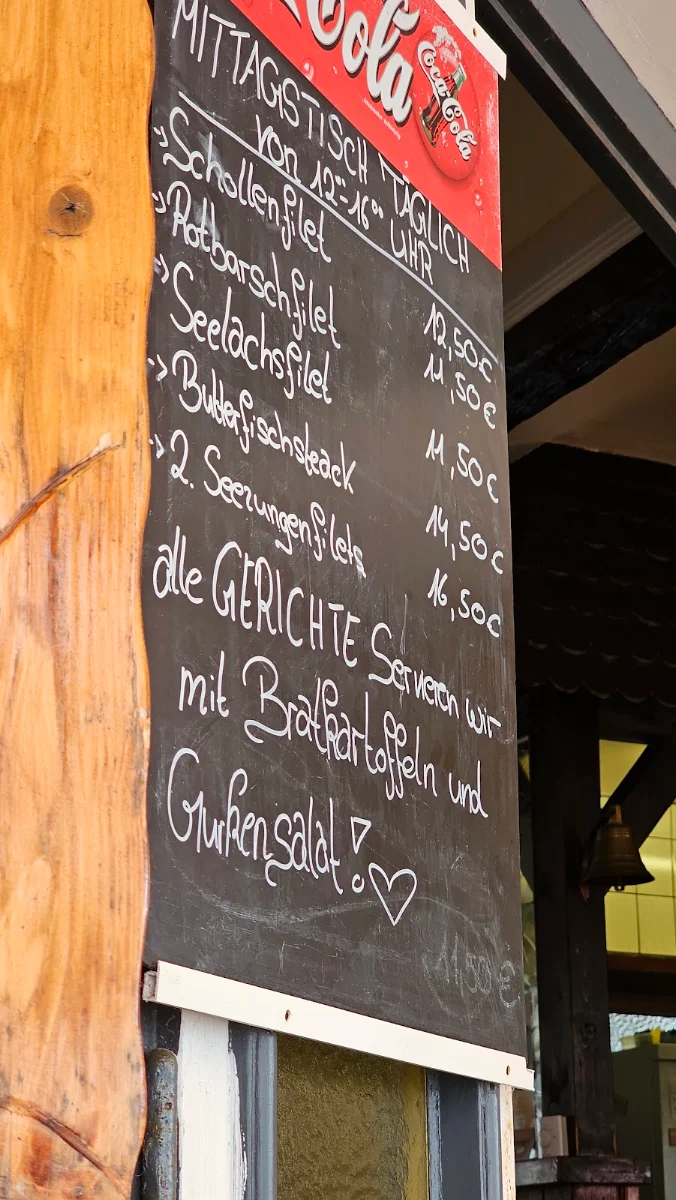 Coca-Cola
Coca-Cola
MITTAGSTISCH TÄGLICH
von 12⁰⁰-16⁰⁰ UHR
-» Schollenfilet 12,50€
-» Rotbarschfilet 11,50€
-» Seelachsfilet 11,50€
-» Butterfischsteack 14,50€
-» 2. Seezungenfilets 16,50€
alle GERICHTE Servieren wir
mit Bratkartoffeln und
Gurkensalat! ♡
11,50 €